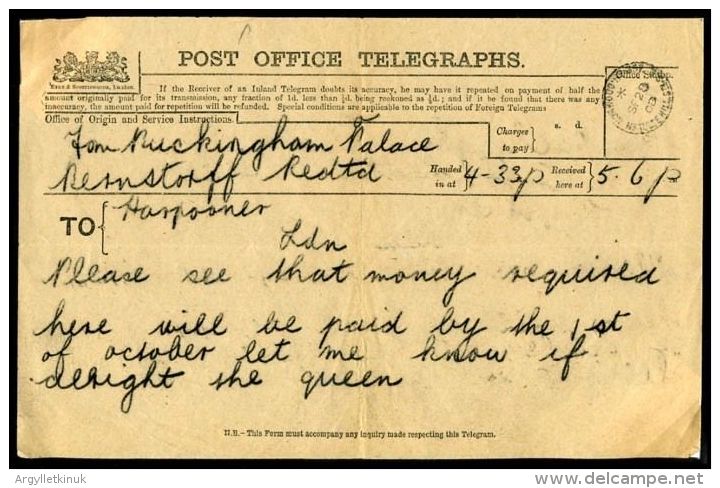 POST OFFICE TELEGRAPHS.
Office Stamp.
If the Receiver of an Inland Telegram doubts its accuracy, he may have it repeated on payment of half the
amount originally paid for its transmission, any fraction of 1d. less than ½d. being reckoned as ½d.; and if it be found that there was any
inaccuracy, the amount paid for repetition will be refunded. Special conditions are applicable to the repetition of Foreign Telegrams
Office of Origin and Service Instructions.
Charges to pay
s. d.
Buckingham Palace
Bernstorff Redtd
Handed in at 4-33p
Received here at 5.6p
TO
Harpooner
Ldn
Please see that money required
here will be paid by the 1st
of october let me know if
alright the queen
N.B.—This Form must accompany any inquiry made respecting this Telegram.
Argylletkinuk
delcampe.net